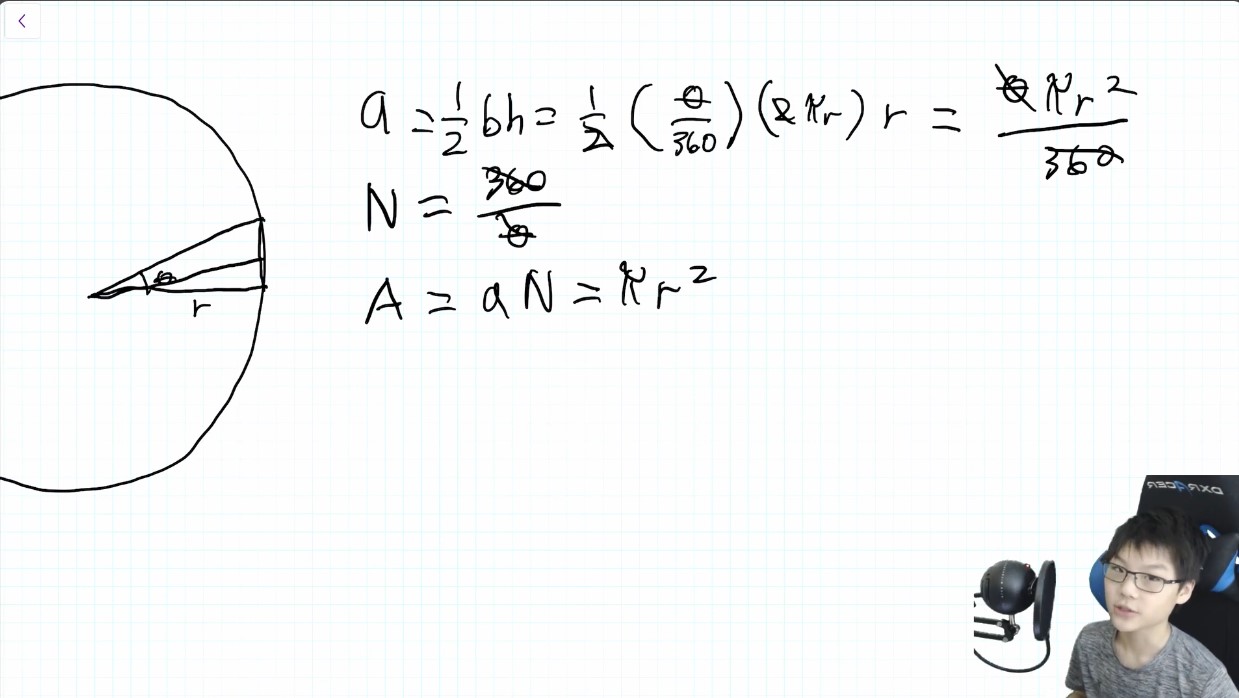 a = 1/2 bh = 1/2 (θ/360)(2πr) r = θπr²/360
N = 360/θ
A = aN = πr²
θ
r
DXRACER